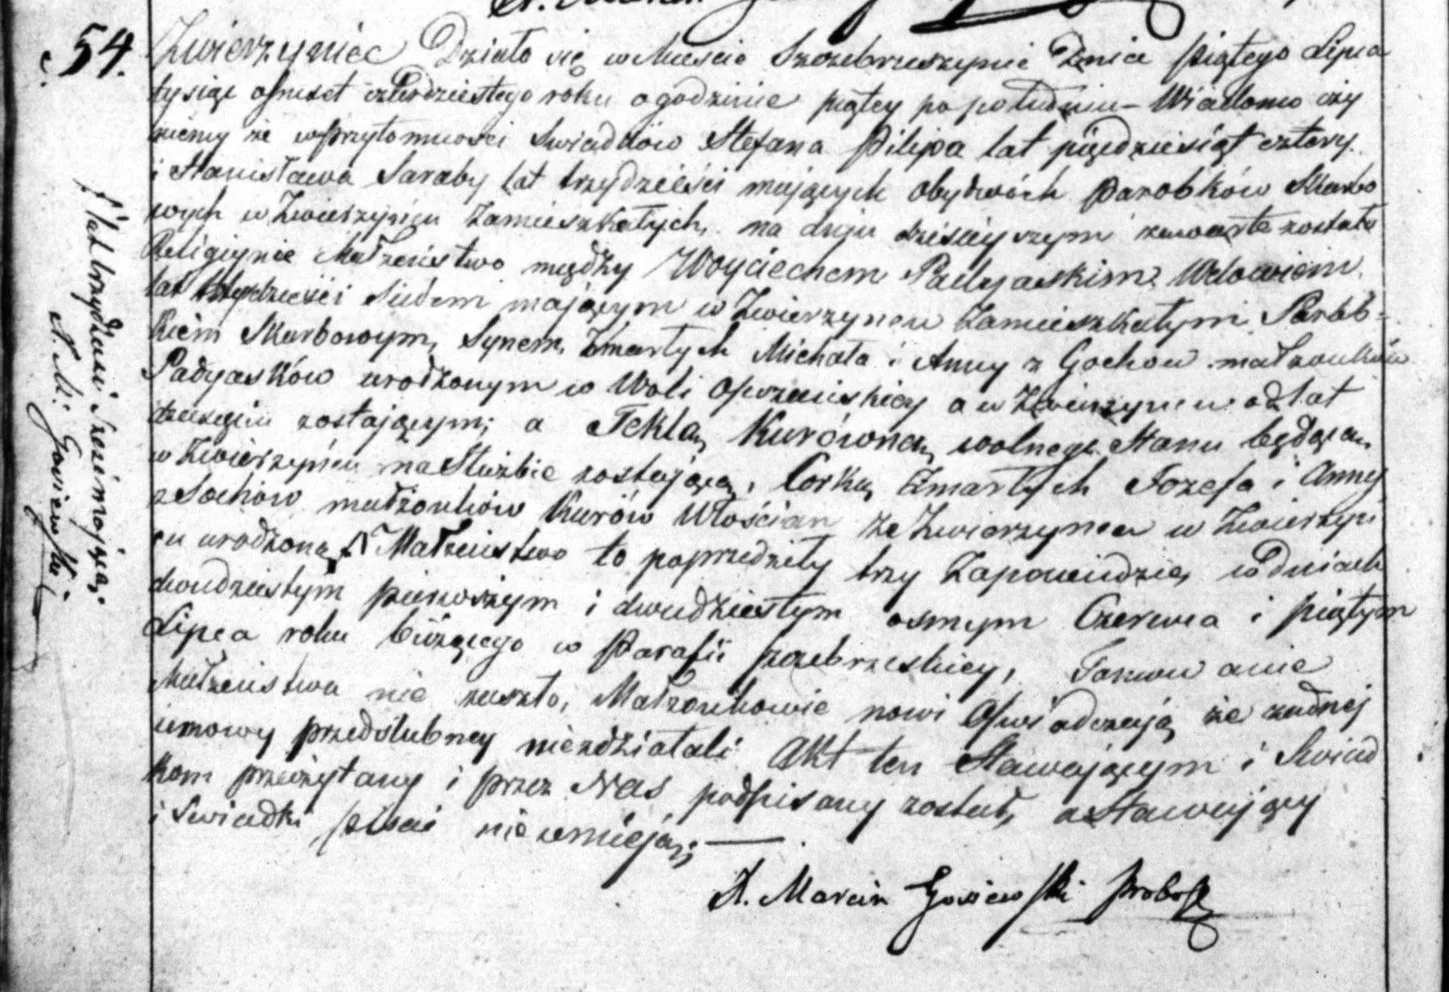 54.
Zwierzyniec Działo się w Mieście Szczebrzeszynie Dnia Piątego Lipca
tysiąc ośmset czterdziestego roku o godzinie piątey po południu – Wiadomo czy
niemy że w przytomności Swiadków Stefana Pilipa lat pięćdziesiąt cztery
i Stanisława Saraby lat trzydzieści mających obydwóch Parobków Skarbo
wych w Zwierzyńcu zamieszkałych, na dniu dzisieyszym zawarte zostało
Religiynie Małżeństwo między Woyciechem Padyjaskim Wdowcem
lat trzydzieści siedem mającym w Zwierzyńcu zamieszkałym Parob=
kiem Skarbowym, Synem Zmarłych Michała i Anny z Gochów małżonków
Padyasków urodzonym w Woli a w Zwierzyńcu od lat
dziesięciu zostającym; a Teklą Kurówną wolnego Stanu będącą,
w Zwierzyńcu na Służbie zostającą, Córką Zmarłych Józefa i Anny
z Sochów małżonków Kurów Włościan ze Zwierzyńca w Zwierzyń
cu urodzoną Małżeństwo to poprzedziły trzy Zapowiedzie, w dniach
dwudziestym pierwszym i dwudziestym osmym Czerwca i piątym
Lipca roku bieżącego w Parafii Szczebrzeskiey, Tamowanie
Małżeństwa nie zaszło, Małżonkowie nowi Oświadczają że żadnej
umowy przedślubney niezdziałali Akt ten Stawającym i Swiad
kom przeczytany i przez Nas podpisany został, a Stawający
i Swiadki pisać nie umieją; —
X. Marcin Gosiewski Probosz
lat trzydzieści sześć mającą.
X. M. Gosiewski